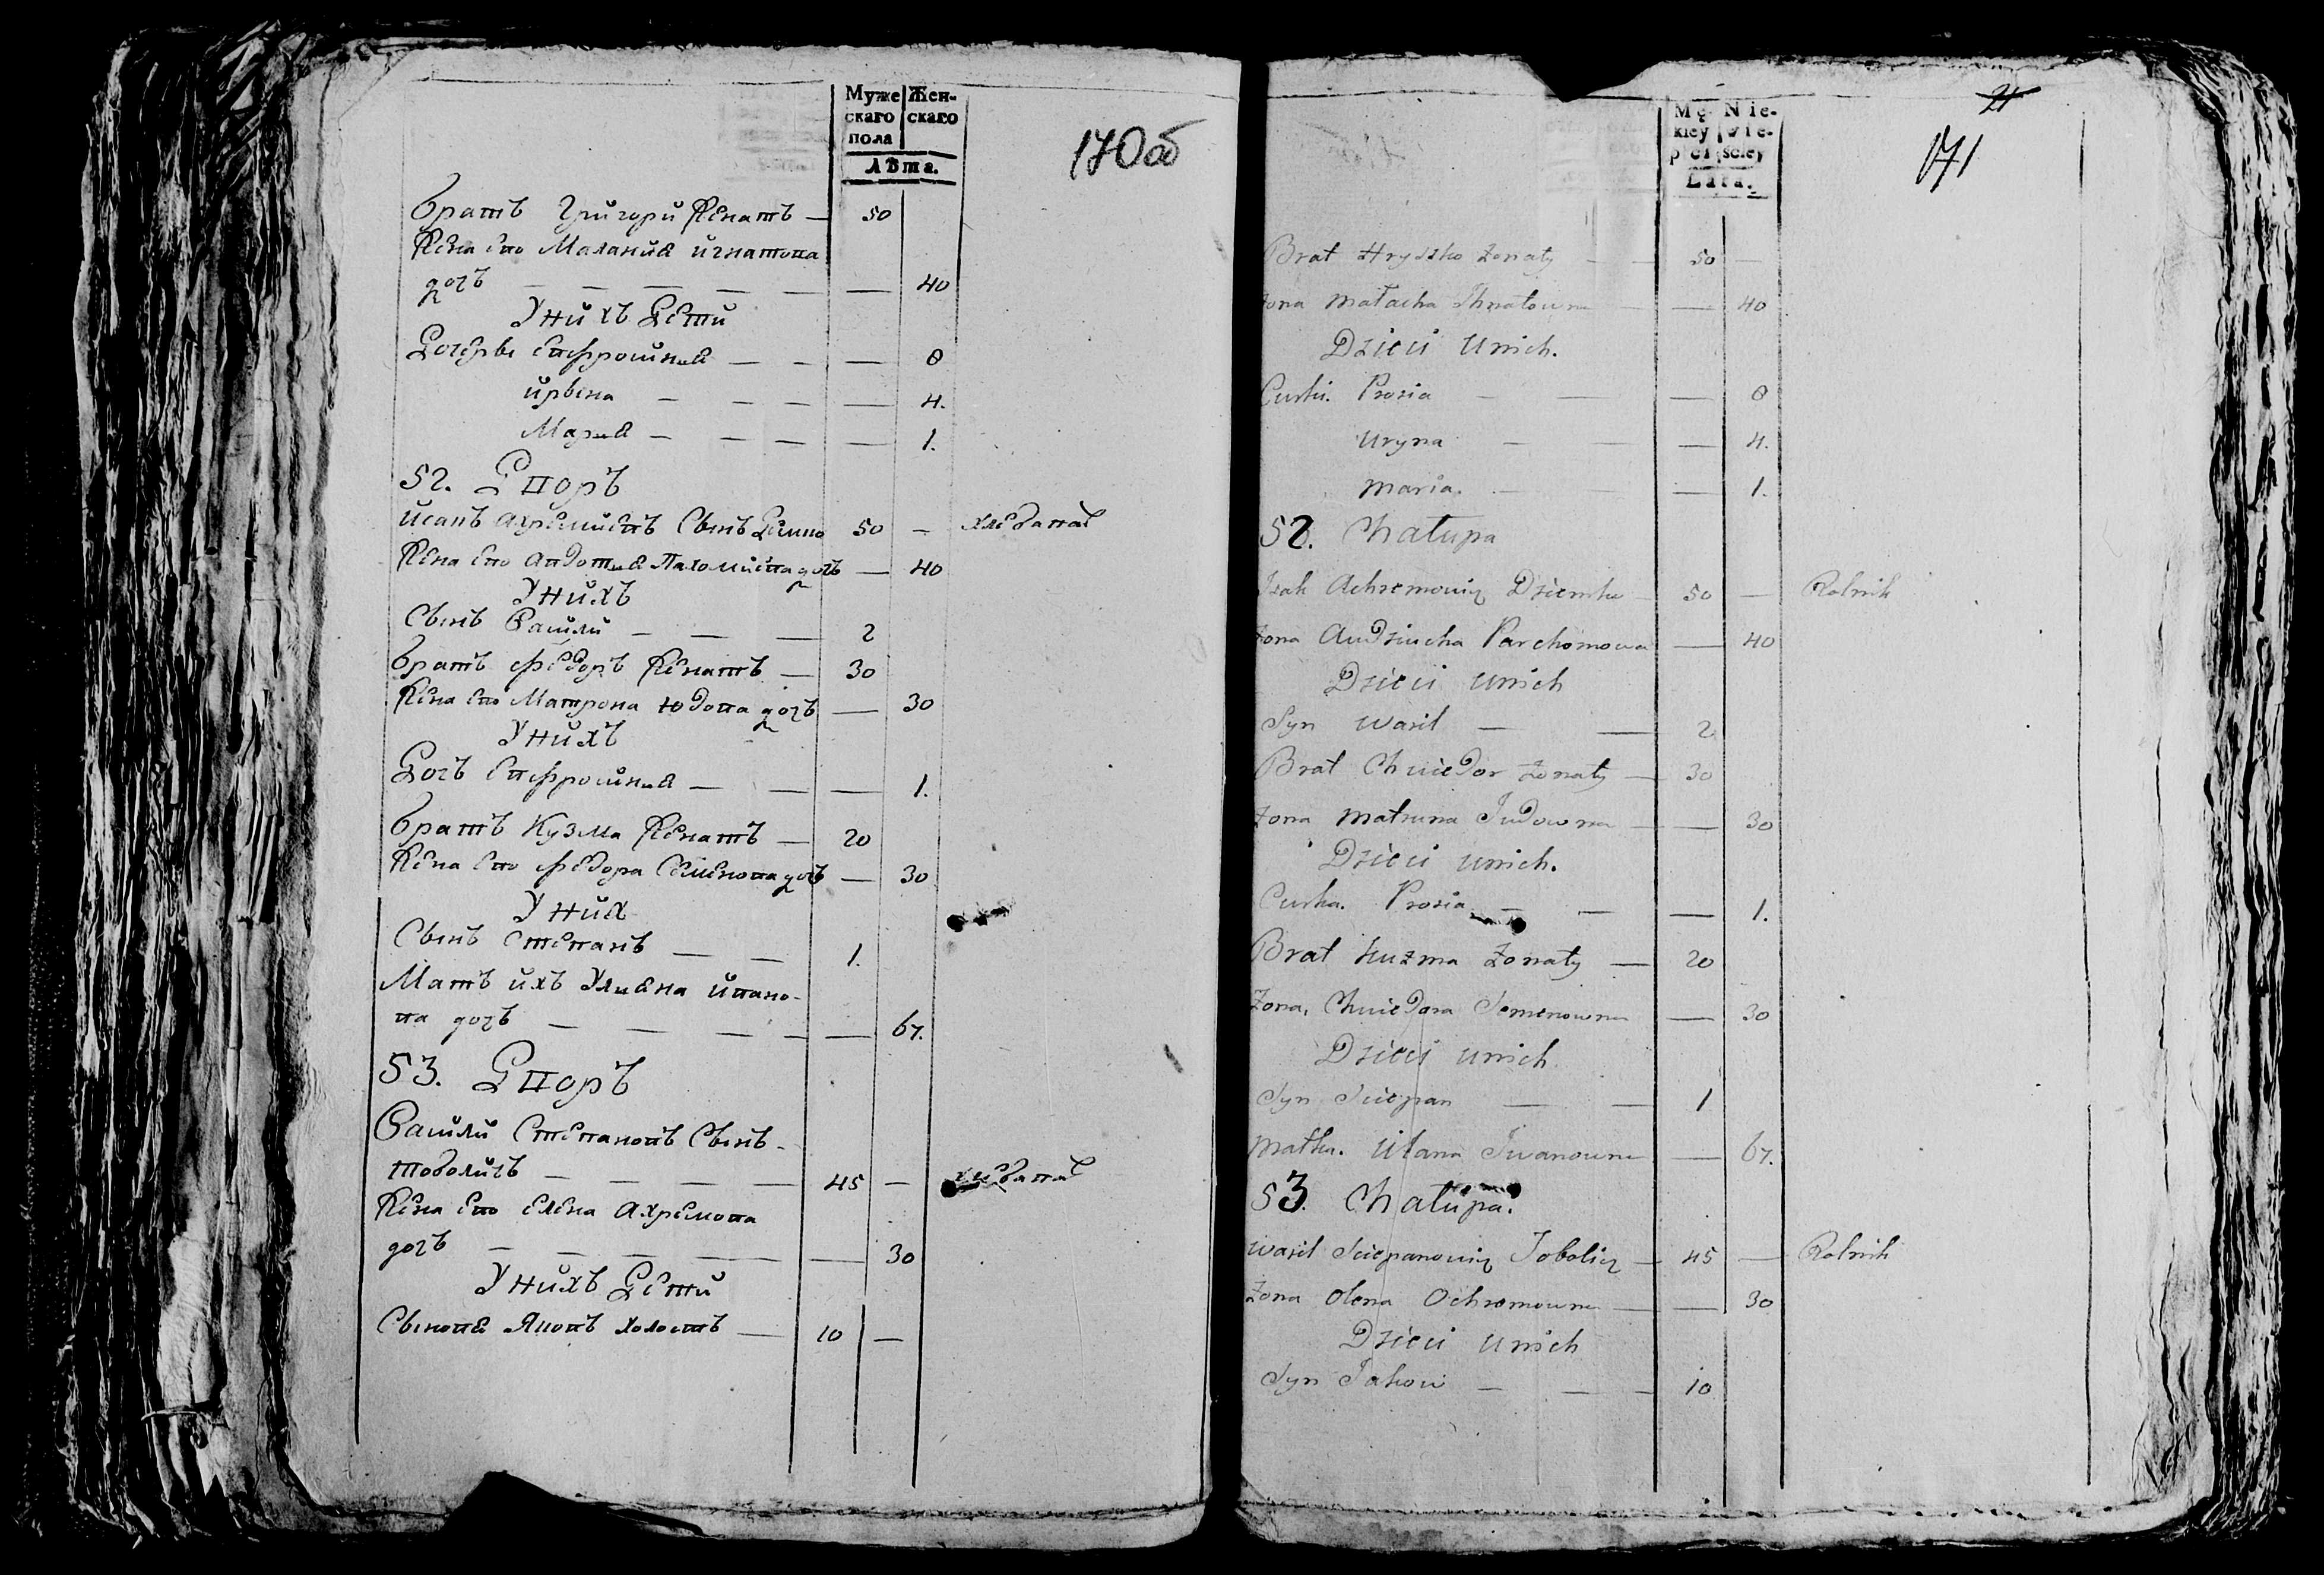 Муже Жен-
скаго скаго
пола
Лѣта.
170об
братъ Григори женатъ — 50
жена его Малания игнатова
дочъ — — — — — — 40
У нихъ Дети
Дочерве Евфросиния — — — 8
ирвена — — — — 4.
Мария — — — — 1.
52. Дворъ
Исакъ Ахремиевъ Сынъ Демко 50 — хлебопа
жена его Авдотия Пахомиева дочъ — 40
У нихъ
Сынъ Васили — — — 2
братъ Федоръ женатъ — 30
жена его Матрона Юдова дочъ — 30
У нихъ
Дочъ Евфросиния — — — 1.
братъ Кузма женатъ — 20
жена его Федора Семенова дочъ — 30
У них
Сынъ Степанъ — — 1.
Матъ ихъ Улияна Ивано-
ва дочъ — — — — — 67.
53. Дворъ
Васили Степановъ Сынъ -
Тоболичъ — — — — 45 —
жена его Елена Ахремова
дочъ — — — — — 30
У нихъ Дети
Сыновя Яковъ холостъ — 10 —
21
Mę- Nie-
kiey wie-
płci ściey
Lata.
171
Brat Hryszko żonaty — 50 —
żona Małacha Ihnatowna — — 40
Dzieci Unich.
Curki. Prosia — — — 8
Uryna — — — 4.
Maria. — — — 1.
52. Chałupa
Izak Achremowicz Dziemko — 50 — Rolnik
żona Audziucha Parchomowa — 40
Dzieci Unich
Syn Wasil — — 2
Brat Chwiedor żonaty — 30
żona Matruna Judowna — — 30
Dzieci unich.
Curka. Prosia — — — 1.
Brat Kuzma Żonaty — 20
Żona, Chwiedora Semenowna — 30
Dzieci unich
Syn Sciepan — — 1
Matka. Ulana Iwanowna — 67.
53. Chałupa.
Wasil Sciepanowicz Tobolicz — 45 — Rolnik
Żona Olena Ochremowna — — 30
Dzieci Unich
Syn Jakow — — — 10